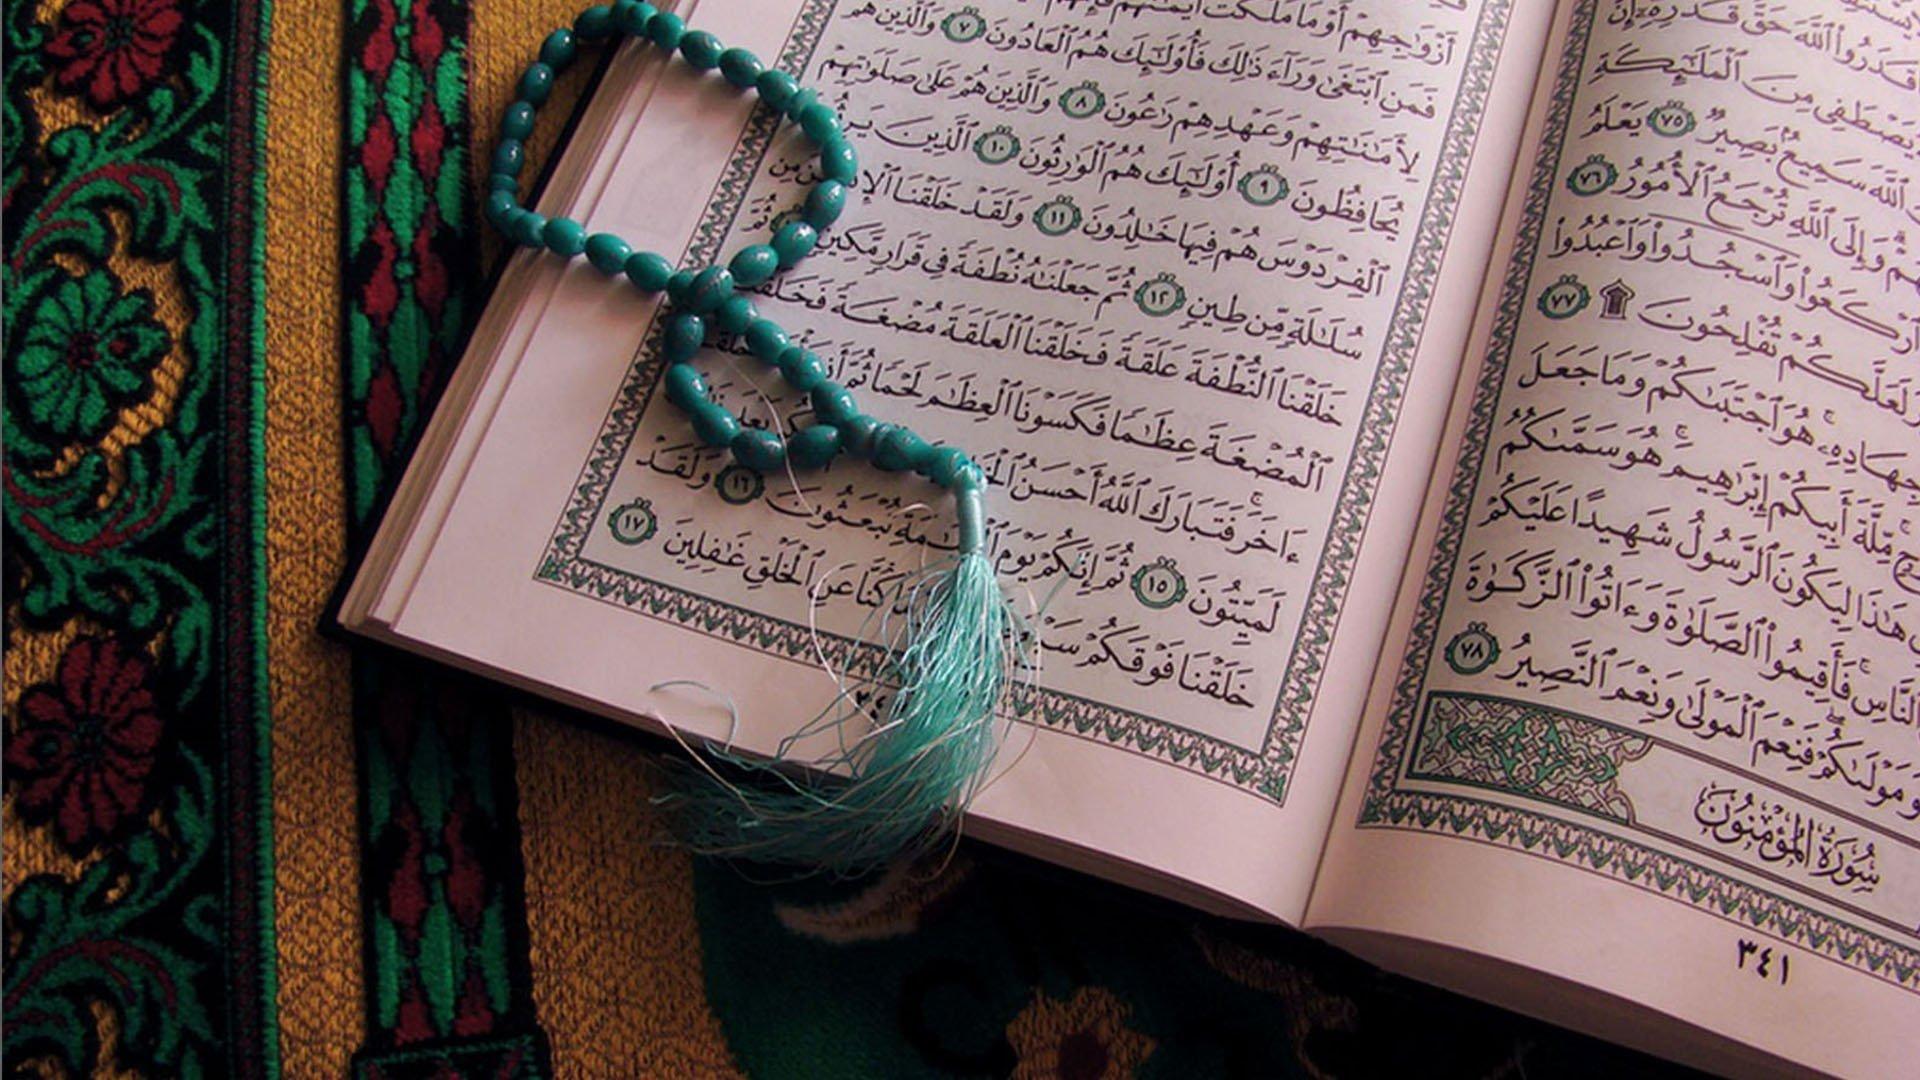 قَدَرُوا۟ ٱللَّهَ حَقَّ قَدْرِهِۦٓ إِنَّ
يَصْطَفِى مِنَ ٱلْمَلَـٰٓئِكَةِ
ٱللَّهَ سَمِيعٌۢ بَصِيرٌ ٧٥ يَعْلَمُ
وَإِلَى ٱللَّهِ تُرْجَعُ ٱلْأُمُورُ ٧٦
ٱرْكَعُوا۟ وَٱسْجُدُوا۟ وَٱعْبُدُوا۟
لَعَلَّكُمْ تُفْلِحُونَ ۩ ٧٧
جِهَادِهِۦ ۚ هُوَ ٱجْتَبَىٰكُمْ وَمَا جَعَلَ
مِّلَّةَ أَبِيكُمْ إِبْرَٰهِيمَ ۚ هُوَ سَمَّىٰكُمُ
هَـٰذَا لِيَكُونَ ٱلرَّسُولُ شَهِيدًا عَلَيْكُمْ
ٱلنَّاسِ ۚ فَأَقِيمُوا۟ ٱلصَّلَوٰةَ وَءَاتُوا۟ ٱلزَّكَوٰةَ
مَوْلَىٰكُمْ ۖ فَنِعْمَ ٱلْمَوْلَىٰ وَنِعْمَ ٱلنَّصِيرُ ٧٨
سُورَةُ المُؤْمِنُونَ
٣٤١
أَزْوَٰجِهِمْ أَوْ مَا مَلَكَتْ أَيْمَـٰنُهُمْ
فَمَنِ ٱبْتَغَىٰ وَرَآءَ ذَٰلِكَ فَأُو۟لَـٰٓئِكَ هُمُ ٱلْعَادُونَ ٧ وَٱلَّذِينَ هُمْ
لِأَمَـٰنَـٰتِهِمْ وَعَهْدِهِمْ رَٰعُونَ ٨ وَٱلَّذِينَ هُمْ عَلَىٰ صَلَوَٰتِهِمْ
يُحَافِظُونَ ٩ أُو۟لَـٰٓئِكَ هُمُ ٱلْوَٰرِثُونَ ١٠ ٱلَّذِينَ
ٱلْفِرْدَوْسَ هُمْ فِيهَا خَـٰلِدُونَ ١١ وَلَقَدْ خَلَقْنَا مِن
سُلَـٰلَةٍ مِّن طِينٍ ١٢ ثُمَّ جَعَلْنَـٰهُ نُطْفَةً فِى قَرَارٍ مَّكِينٍ ثُمَّ
خَلَقْنَا ٱلنُّطْفَةَ عَلَقَةً فَخَلَقْنَا ٱلْعَلَقَةَ مُضْغَةً
ٱلْمُضْغَةَ عِظَـٰمًا فَكَسَوْنَا ٱلْعِظَـٰمَ لَحْمًا ثُمَّ
ءَاخَرَ ۚ فَتَبَارَكَ ٱللَّهُ أَحْسَنُ
لَمَيِّتُونَ ١٥ ثُمَّ إِنَّكُمْ يَوْمَ تُبْعَثُونَ ١٦ وَلَقَدْ
خَلَقْنَا فَوْقَكُمْ كُنَّا عَنِ ٱلْخَلْقِ غَـٰفِلِينَ ١٧